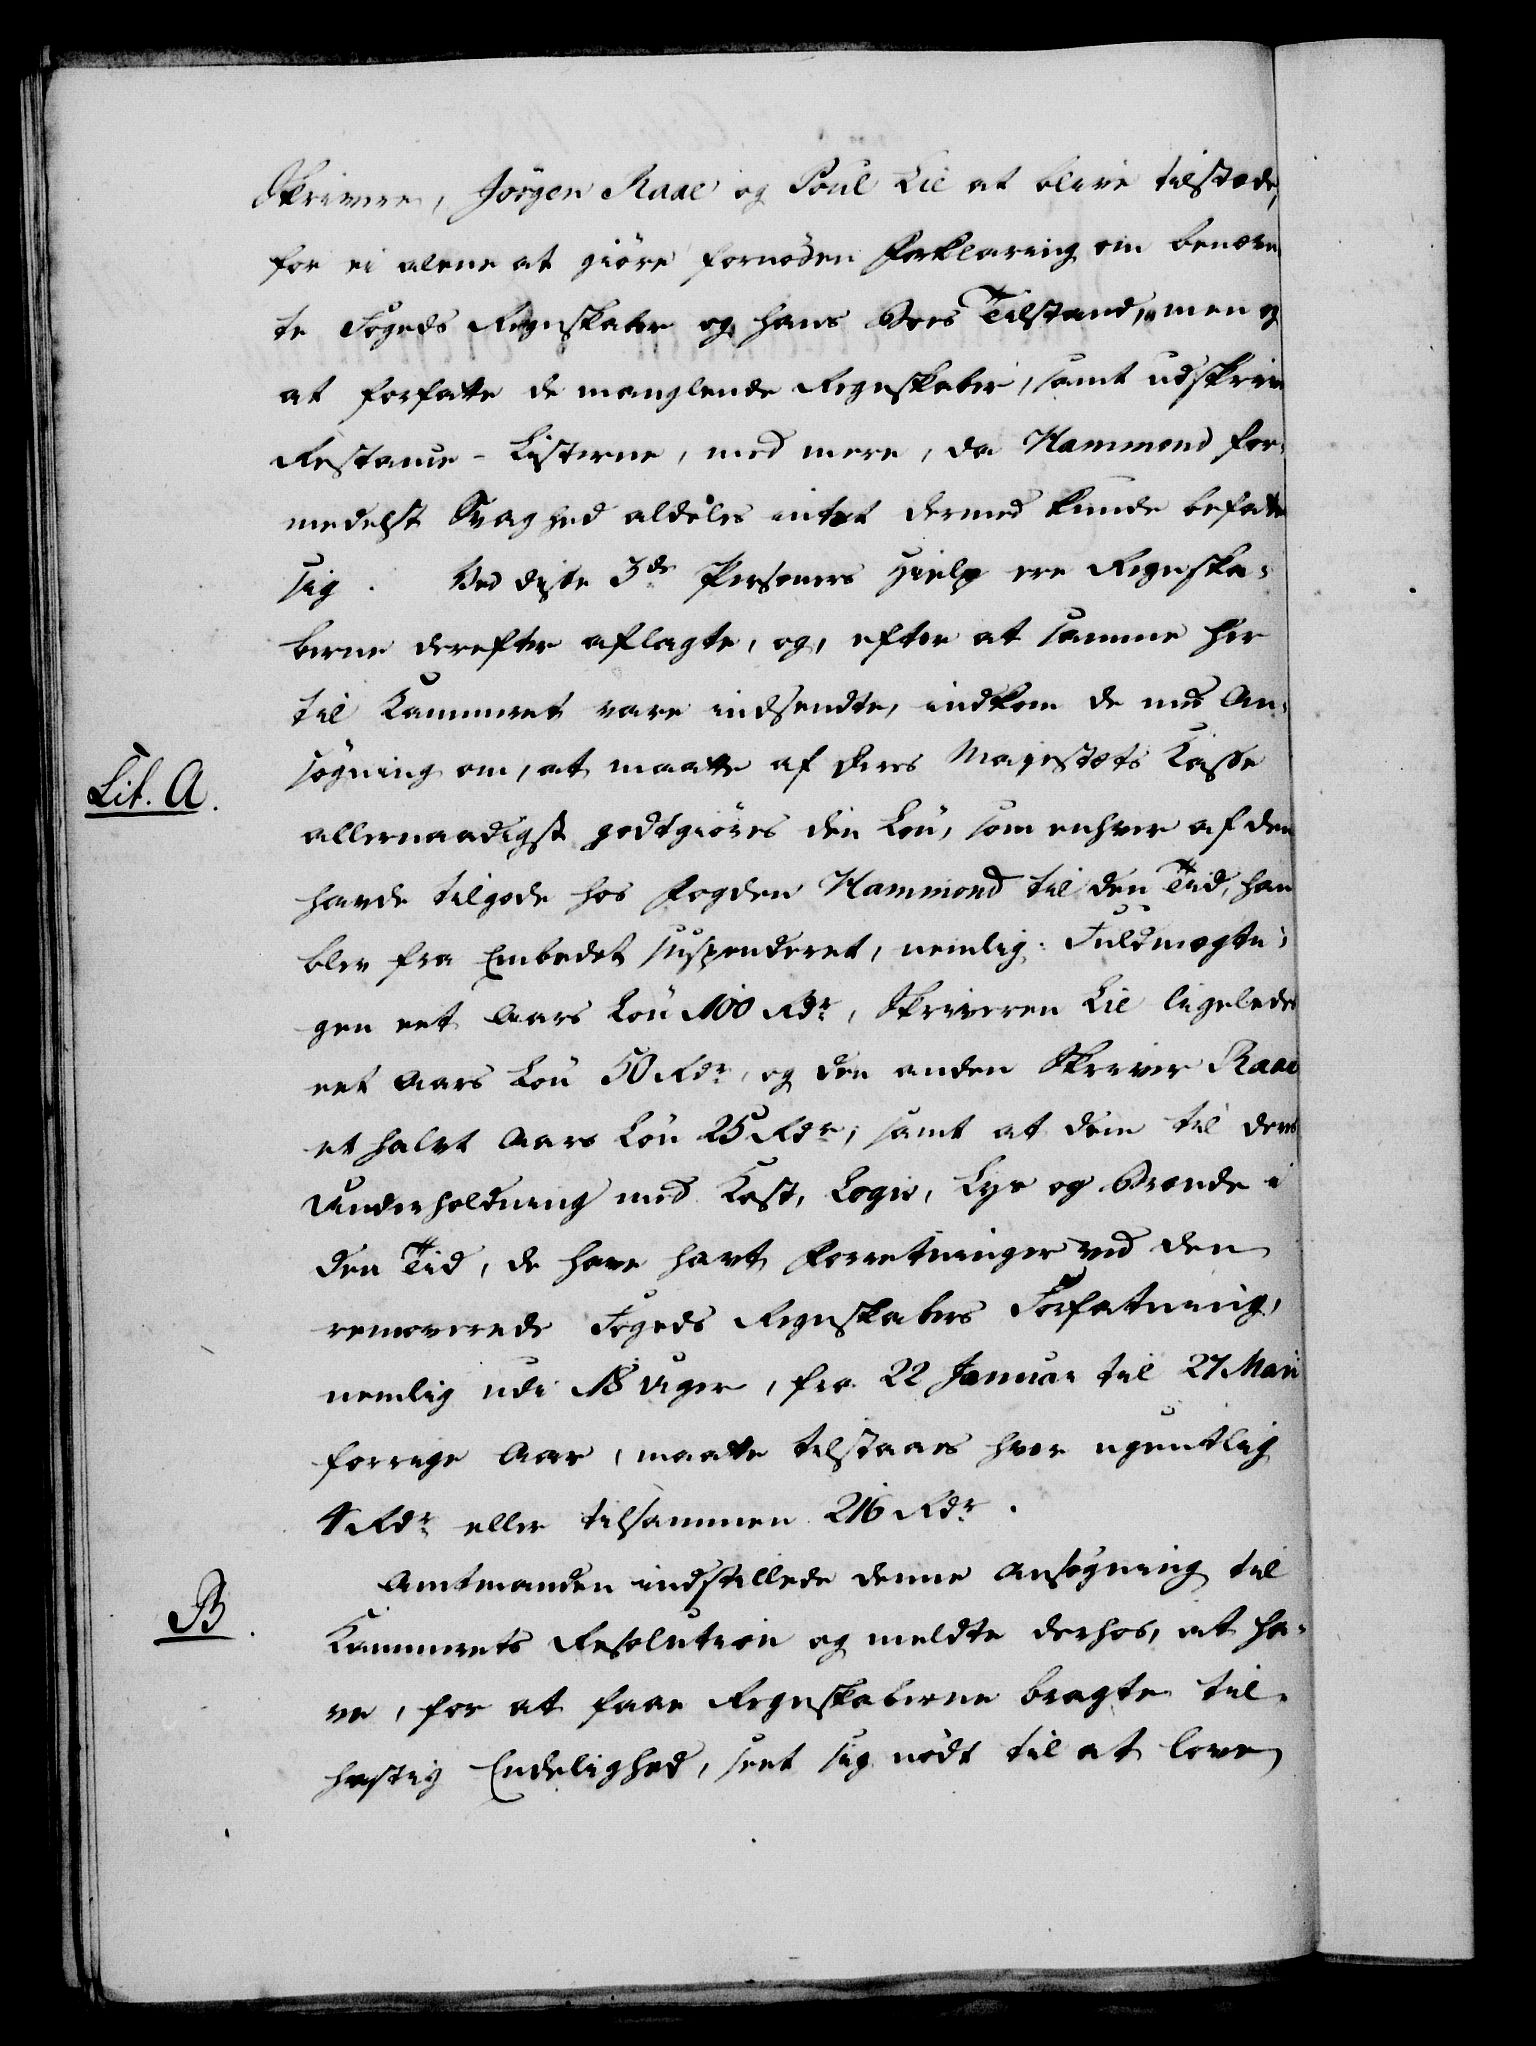 Skrivere, Jörgen Raae og Poul Lie at blive tilstæde,
for ei alene at giöre fornöden Forklaring om benævn
te Fogeds Regnskaber og hans Boes Tilstand, men og
at forfatte de manglende Regnskaber, samt udskrive
Restance-Listerne, med mere, da Hammond for-
medelst Svaghed aldeles intet dermed kunde befatte
sig. Ved disse 3de Personers Hielp ere Regnska-
berne derefter aflagte, og, efter at samme her
til Kammeret vare indsendte, indkom de med An-
Lit. A.
søgning om, at maatte af Deres Majestæts Kasse
allernaadigst godtgiöres den Lön, som enhver af dem
havde tilgode hos Fogden Hammond til den Tid, han
blev fra Embedet suspenderet, nemlig: Fuldmægti-
gen eet Aars Lön 100 Rdr, Skriveren Lie ligeledes
eet Aars Lön 50 Rdr, og den anden Skriver Raae
et halvt Aars Lön 25 Rdr; samt at dem til deres
Underholdning med Kost, Logie, Lys og Brænde i
den Tid, de have havt Forretninger ved den
removerede Fogeds Regnskabers Forfatning,
nemlig udi 18 Uger, fra 22 Januar til 27 Maii
forrige Aar, maatte tilstaaes hver ugentlig
4 Rdr eller tilsammen 216 Rdr.
Amtmanden indstillede denne Ansøgning til
B.
Kammerets Resolution og meldte derhos, at ha-
ve, for at faae Regnskaberne bragte til
hastig Endelighed, seet sig nödt til at love